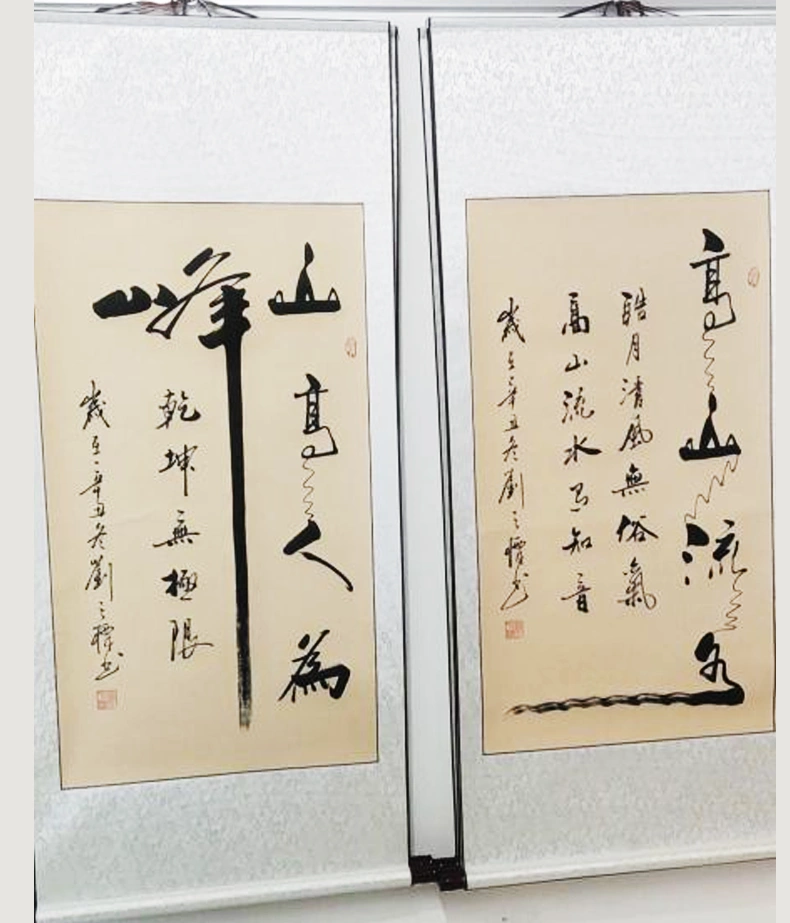 高山流水
皓月清風無俗氣
高山流水有知音
歲至辛丑冬劉之標书
山高人為峰
乾坤無極限
歲至辛丑冬劉之標书